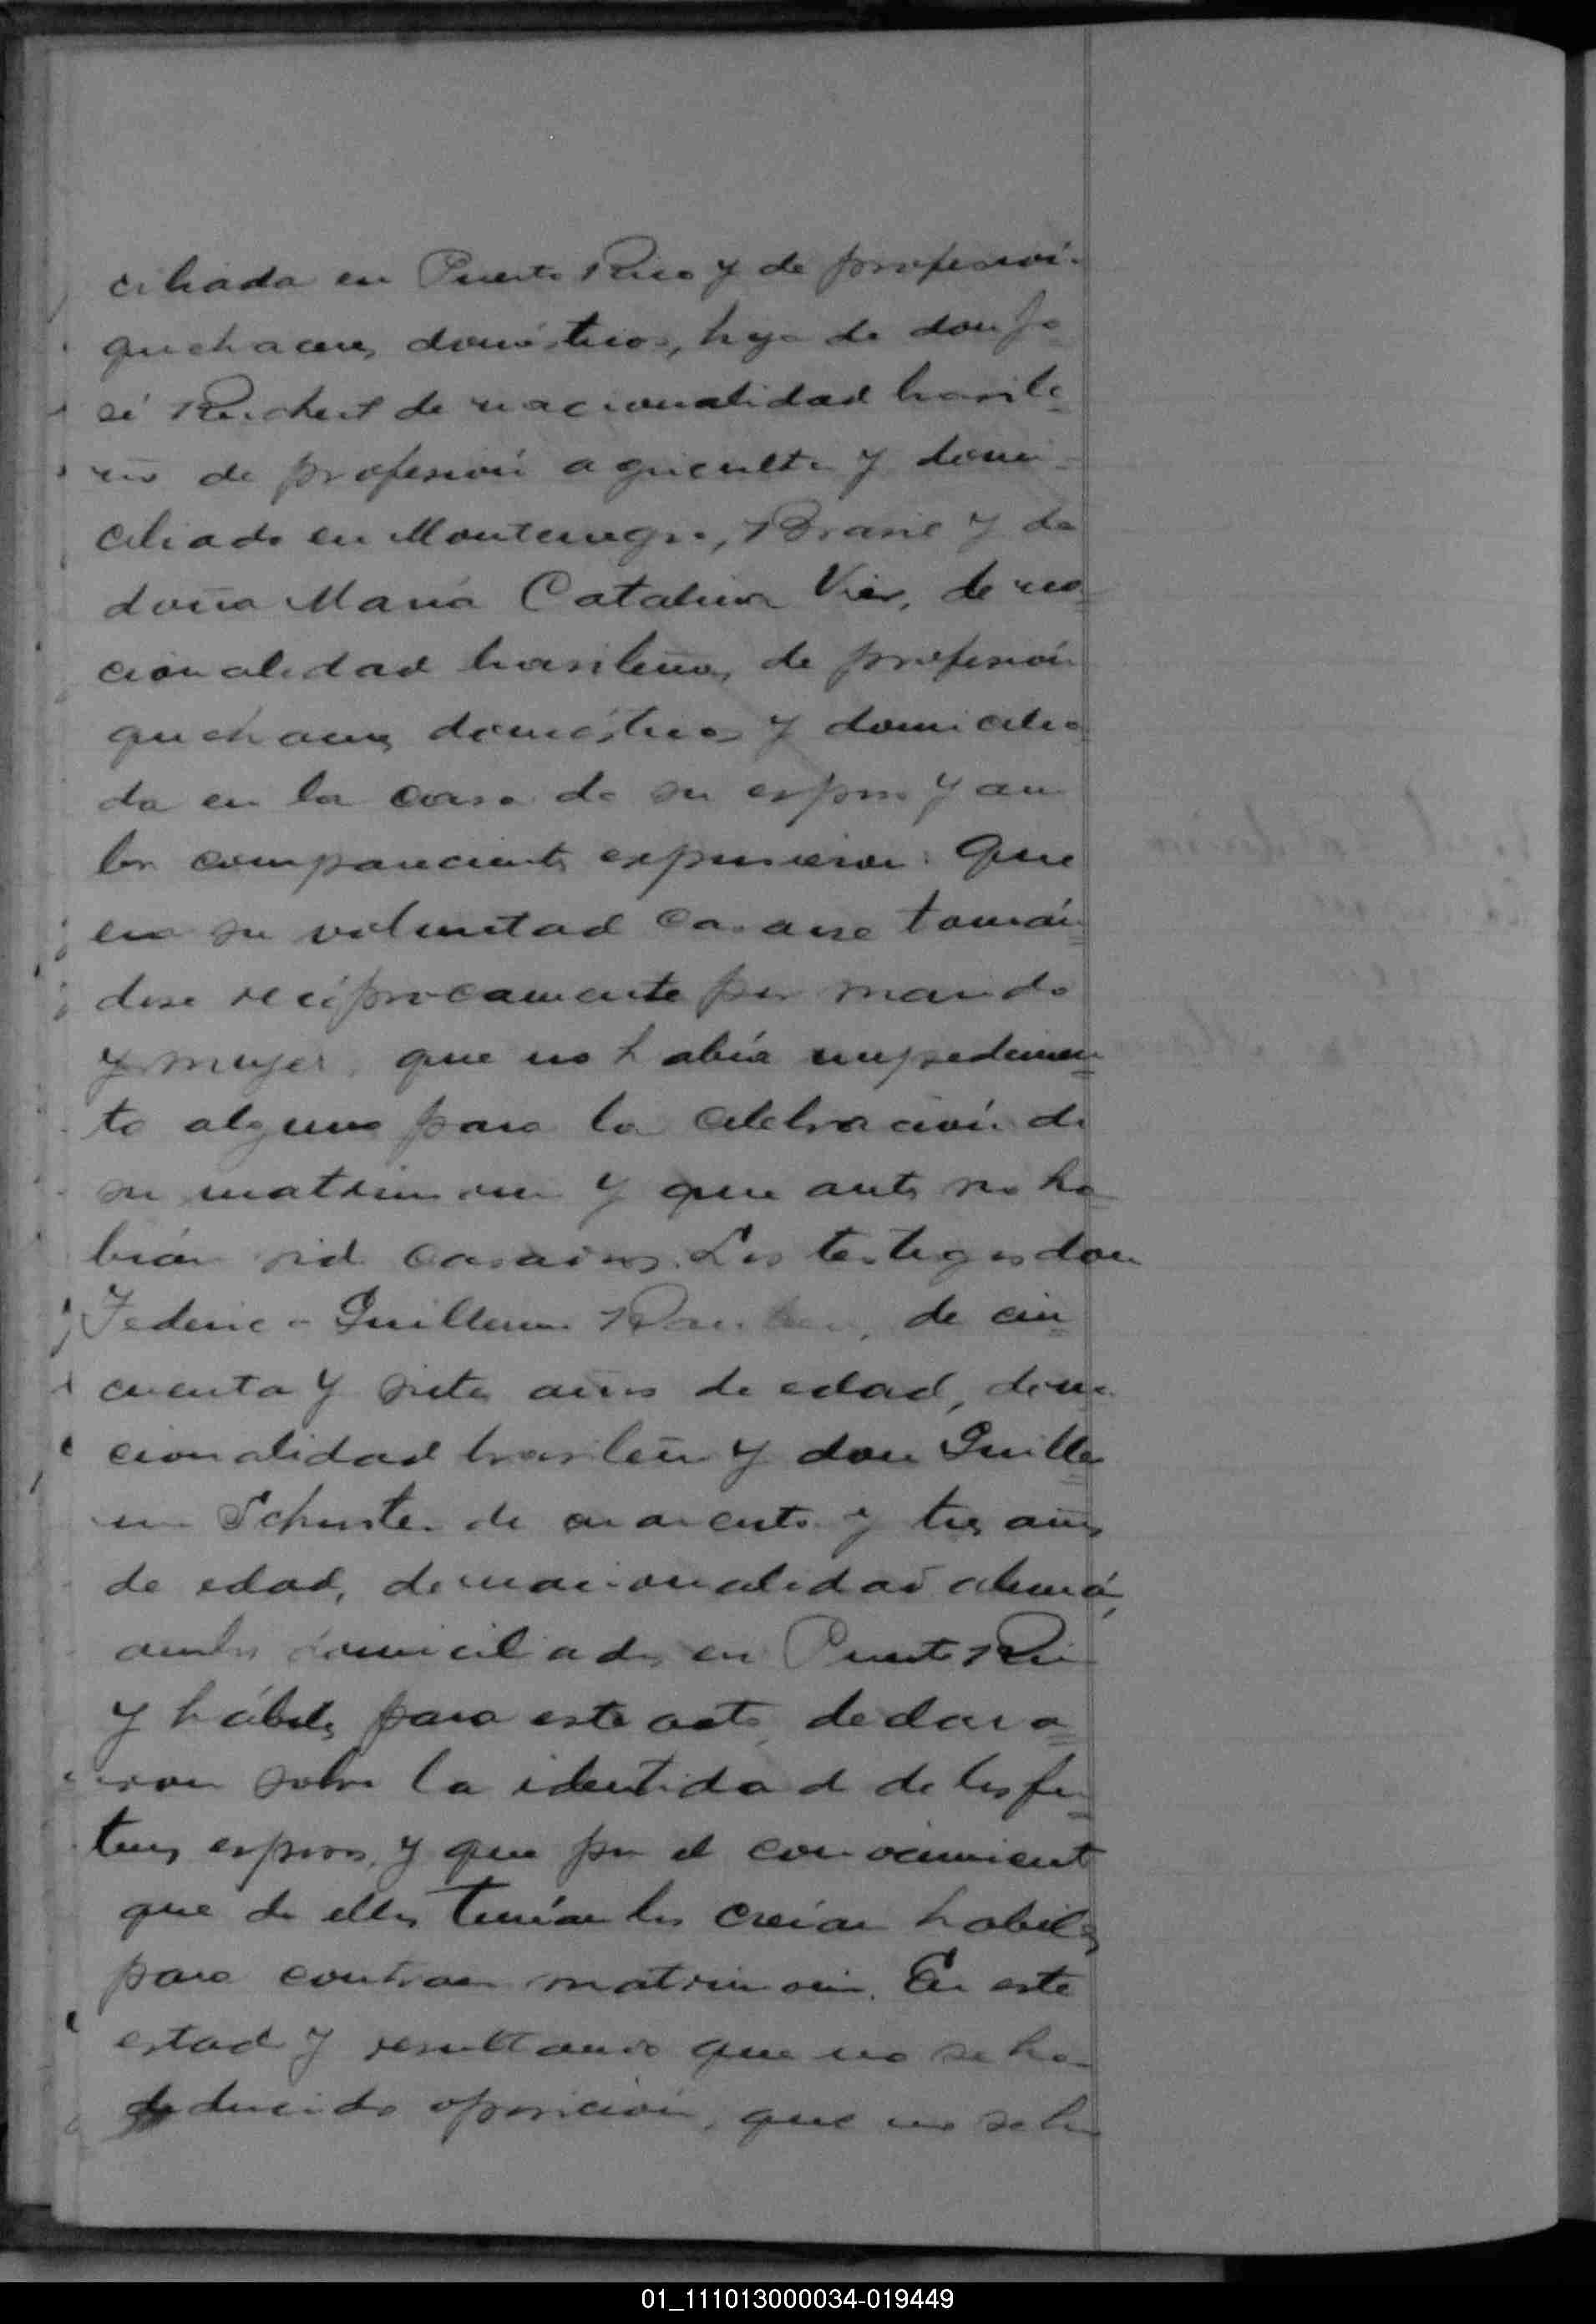 ciliada en Puerto Rico y de profesión
quehaceres domésticos, hija de don Jo
sé Reichert de nacionalidad brasile
ño de profesión agricultor y domi-
ciliado en Montenegro, Brasil y de
doña María Catalina Vier, de na
cionalidad brasileña, de profesión
quehaceres domésticos y domicilia
da en la casa de su esposo y am
bos comparecientes expusieron: Que
era su voluntad casarse tomán
dose recíprocamente por marido
y mujer, que no había impedimen
to alguno para la celebración de
su matrimonio y que antes no ha
bían sido casados. Los testigos don
Federico Guillermo de cin
cuenta y siete años de edad, de na
cionalidad brasileña y don Guiller
mo Schuster de cuarenta y tres años
de edad, de nacionalidad alemána,
ambos domiciliados en Puerto Rico
y hábiles para este acto, declara
ron sobre la identidad de los fu
turos esposos, y que por el conocimiento
que de ellos tenían los creían habiles
para contraer matrimonio. En este
estado y resultando que no se ha
deducido oposición, que no se ha
01_111013000034-019449